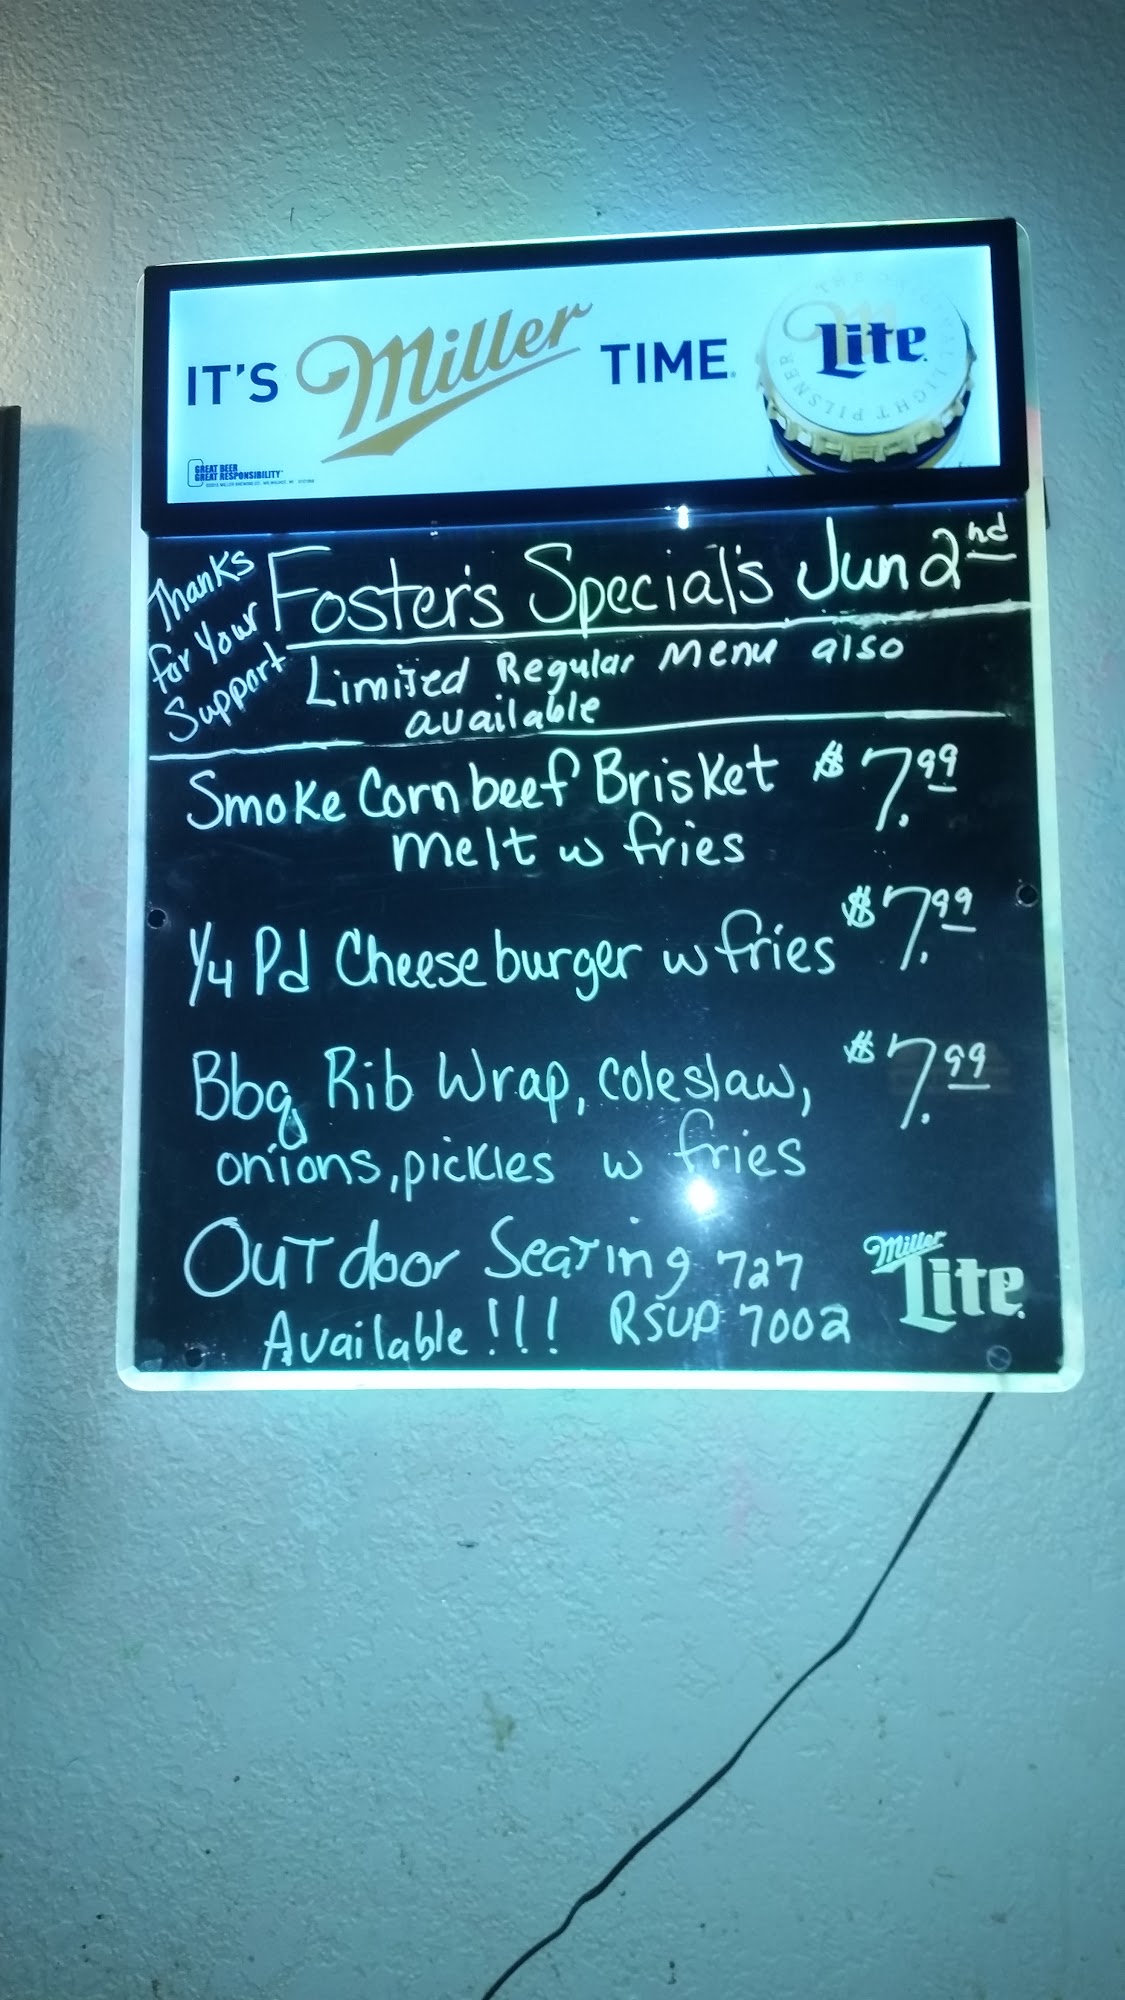 IT'S Miller TIME.
Lite
THE ORIGINAL LIGHT PILSNER
GREAT BEER
GREAT RESPONSIBILITY
Thanks
for Your
Support
Foster's Special's Jun 2nd
Limited Regular Menu also
available
Smoke Cornbeef Brisket $7.99
melt w fries
1/4 Pd Cheeseburger w fries $7.99
Bbq Rib Wrap, coleslaw, $7.99
onions, pickles w fries
Outdoor Seating 727
Available!!! RSVP 7002
Miller
Lite